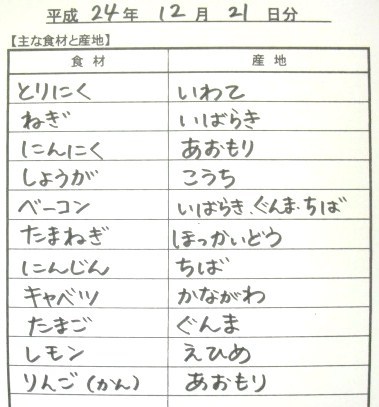 平成 24年 12月 21日分
【主な食材と産地】
食材 産地
とりにく いわて
ねぎ いばらき
にんにく あおもり
しょうが こうち
ベーコン いばらき、ぐんま、ちば
たまねぎ ほっかいどう
にんじん ちば
キャベツ かながわ
たまご ぐんま
レモン えひめ
りんご(かん) あおもり